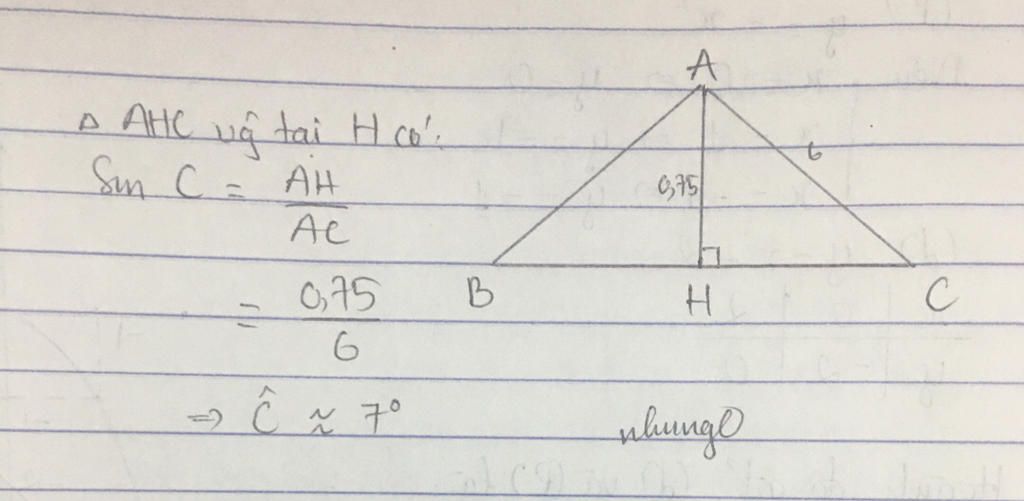 Δ AHC vg tại H có:
Sin C = AH / AC
= 0,75 / 6
=> Ĉ ≈ 7°
A
6
0,75
B
H
C
nhungO